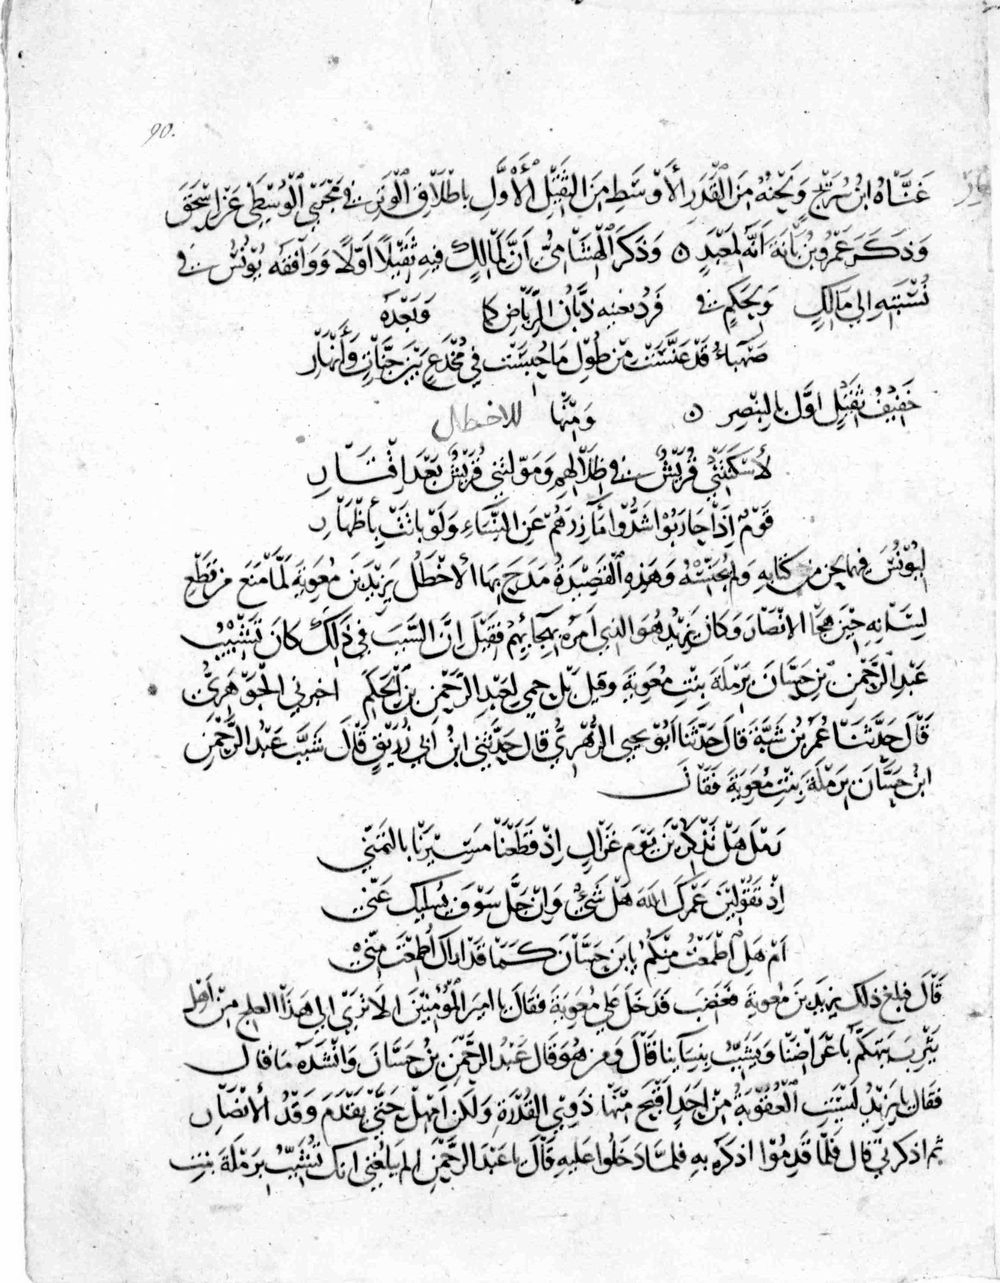 90.
غَنَّاهُ ابْنُ سُرَيْجٍ وَلَحْنُهُ مِنَ الْقَدْرِ الأَوْسَطِ مِنَ الثَّقِيْلِ الْأَوَّلِ بِاطْلَاقِ الْوَتَرِ فِي مَجْرَى الْوُسْطَى عَنْ اِسْحٰقَ
وَذَكَرَ عَمْرُو بْنُ بَانَةَ اَنَّهُ لِمَعْبَدٍ ٥ وَذَكَرَ الْهِشَامِىُّ اَنَّ لِمَالِكٍ فِيهِ ثَقِيْلًا اَوَّلًا وَوَافَقَهُ يُوْنُسُ فِي
نِسْبَتِهِ الى مَالِكٍ وَلِحَكَمٍ فِي فَرْدٌ تغنيه ذِبَّانُ الرِّيَاضِ كما وَبَعْدَهُ
صَهْبَاءُ قَدْ عَنَسَتْ مِنْ طُوْلِ مَا حُبِسَتْ فِي مُخْدَعٍ بَيْنَ جَنَّاتٍ وَأَنْهَارِ
خَفِيْفُ ثَقِيْلٍ اوَّل بالبِنْصِرِ ٥ وَمِنْهَا للاخطل
لأَسْكَنَتْنِي قُرَيْشٌ فِي ظِلَالِهِمِ وَمَوَّلَتْنِي قُرَيْشٌ بَعْدَ اِقْتَارِ
قَوْمٌ اِذَا حَارَبُوْا شَدُّوْا مَآزِرَهُمْ عَنِ النِّسَاءِ وَلَوْ بَانَتْ بِأَطْهَارِ
لِيُوْنُسَ فيها لحن من كتابِهِ وَلَمْ يُجَنِّسْهُ وَهَذِهِ الْقَصِيْدَةُ مَدَحَ بِهَا الأَخْطَلُ يَزِيْدَ بْنَ مُعٰوِيَةَ لَمَّا مَنَعَ مِنْ قَطْعِ
لِسَانِهِ حِيْنَ هَجَا الانْصَارَ وَكَانَ يَزِيْدُ هُوَ الذِي اَمَرَهُ بِهِجَائِهِمْ فَقِيْلَ اِنَّ السَّبَبَ فِي ذَالِكَ كَانَ تَشْبِيْبُ
عَبْدِ الرَّحْمٰنِ بْنِ حَسَّانَ بِرَمْلَةَ بِنْتِ مُعٰوِيَةَ وَقيلَ بَلْ حمى لِعَبْدِ الرَّحْمٰنِ بْنِ الْحَكَمِ اخبرني الجَوْهَرِىُّ
قَالَ حَدَّثَنَا عُمَرُ بْنُ شَبَّةَ قَالَ حَدَّثَنَا اَبُوْ يحيى الزُّهْرِيُّ قال حَدَّثَنِي ابْنُ ابى زُرَيْقٍ قَالَ شَبَّبَ عَبْدُ الرَّحْمٰنِ
ابْنُ حَسَّانَ بِرَمْلَةَ بِنْتِ مُعٰوِيَةَ فَقَالَ
رَمْلَ هَلْ تَذْكُرِيْنَ يَوْمَ غَزَالٍ اِذْ قَطَعْنَا مَسِيْرَنَا بِالتَّمَنِّي
اِذْ تَقُوْلِيْنَ عَمْرَكَ اللهَ هَلْ شَيْءٌ وَاِنْ جَلَّ سَوْفَ يُسْلِيْكَ عَنِّي
اَمْ هَلِ اطْمَعْتُ مِنْكُمُ يا بنَ حَسَّانَ كَمَا قَدْ اَرَاكَ اُطْمِعْتَ مِنِّي
قَالَ فبلغ ذلك يَزِيْدَ بْنَ مُعٰوِيَةَ فَغَضِبَ فَدَخَلَ عَلَى مُعٰوِيَةَ فَقَالَ يا امِيْرَ الْمُؤْمِنِيْنَ الا تَرَى الى هَذَا العِلْجِ مِنْ اَهْلِ
يَثْرِبَ يَتَهَكَّمُ بِأَعْرَاضِنَا وَيُشَبِّبُ بِنِسَآئِنَا قَالَ وَمَنْ هُوَ قَالَ عَبْدُ الرَّحْمٰنِ بْنُ حَسَّانَ وَانْشَدَهُ مَا قال
فقال يا يَزِيْدُ لَيْسَتِ الْعُقُوْبَةُ مِنْ اَحَدٍ اَقْبَحَ مِنْهَا مِنْ ذَوِي القُدْرَةِ وَلَكِنْ اَمْهِلْ حَتَّى يَقْدَمَ وَفْدُ الأَنْصَارِ
ثم اذكرني قال فَلَمَّا قَدِمُوْا اذكَرَه بِهِ فلمَّا دَخَلُوْا عَلَيْهِ قَالَ يا عَبْدَ الرَّحْمٰنِ الم يَبْلُغْنِي انك تُشَبِّبُ بِرَمْلَةَ بنتِ